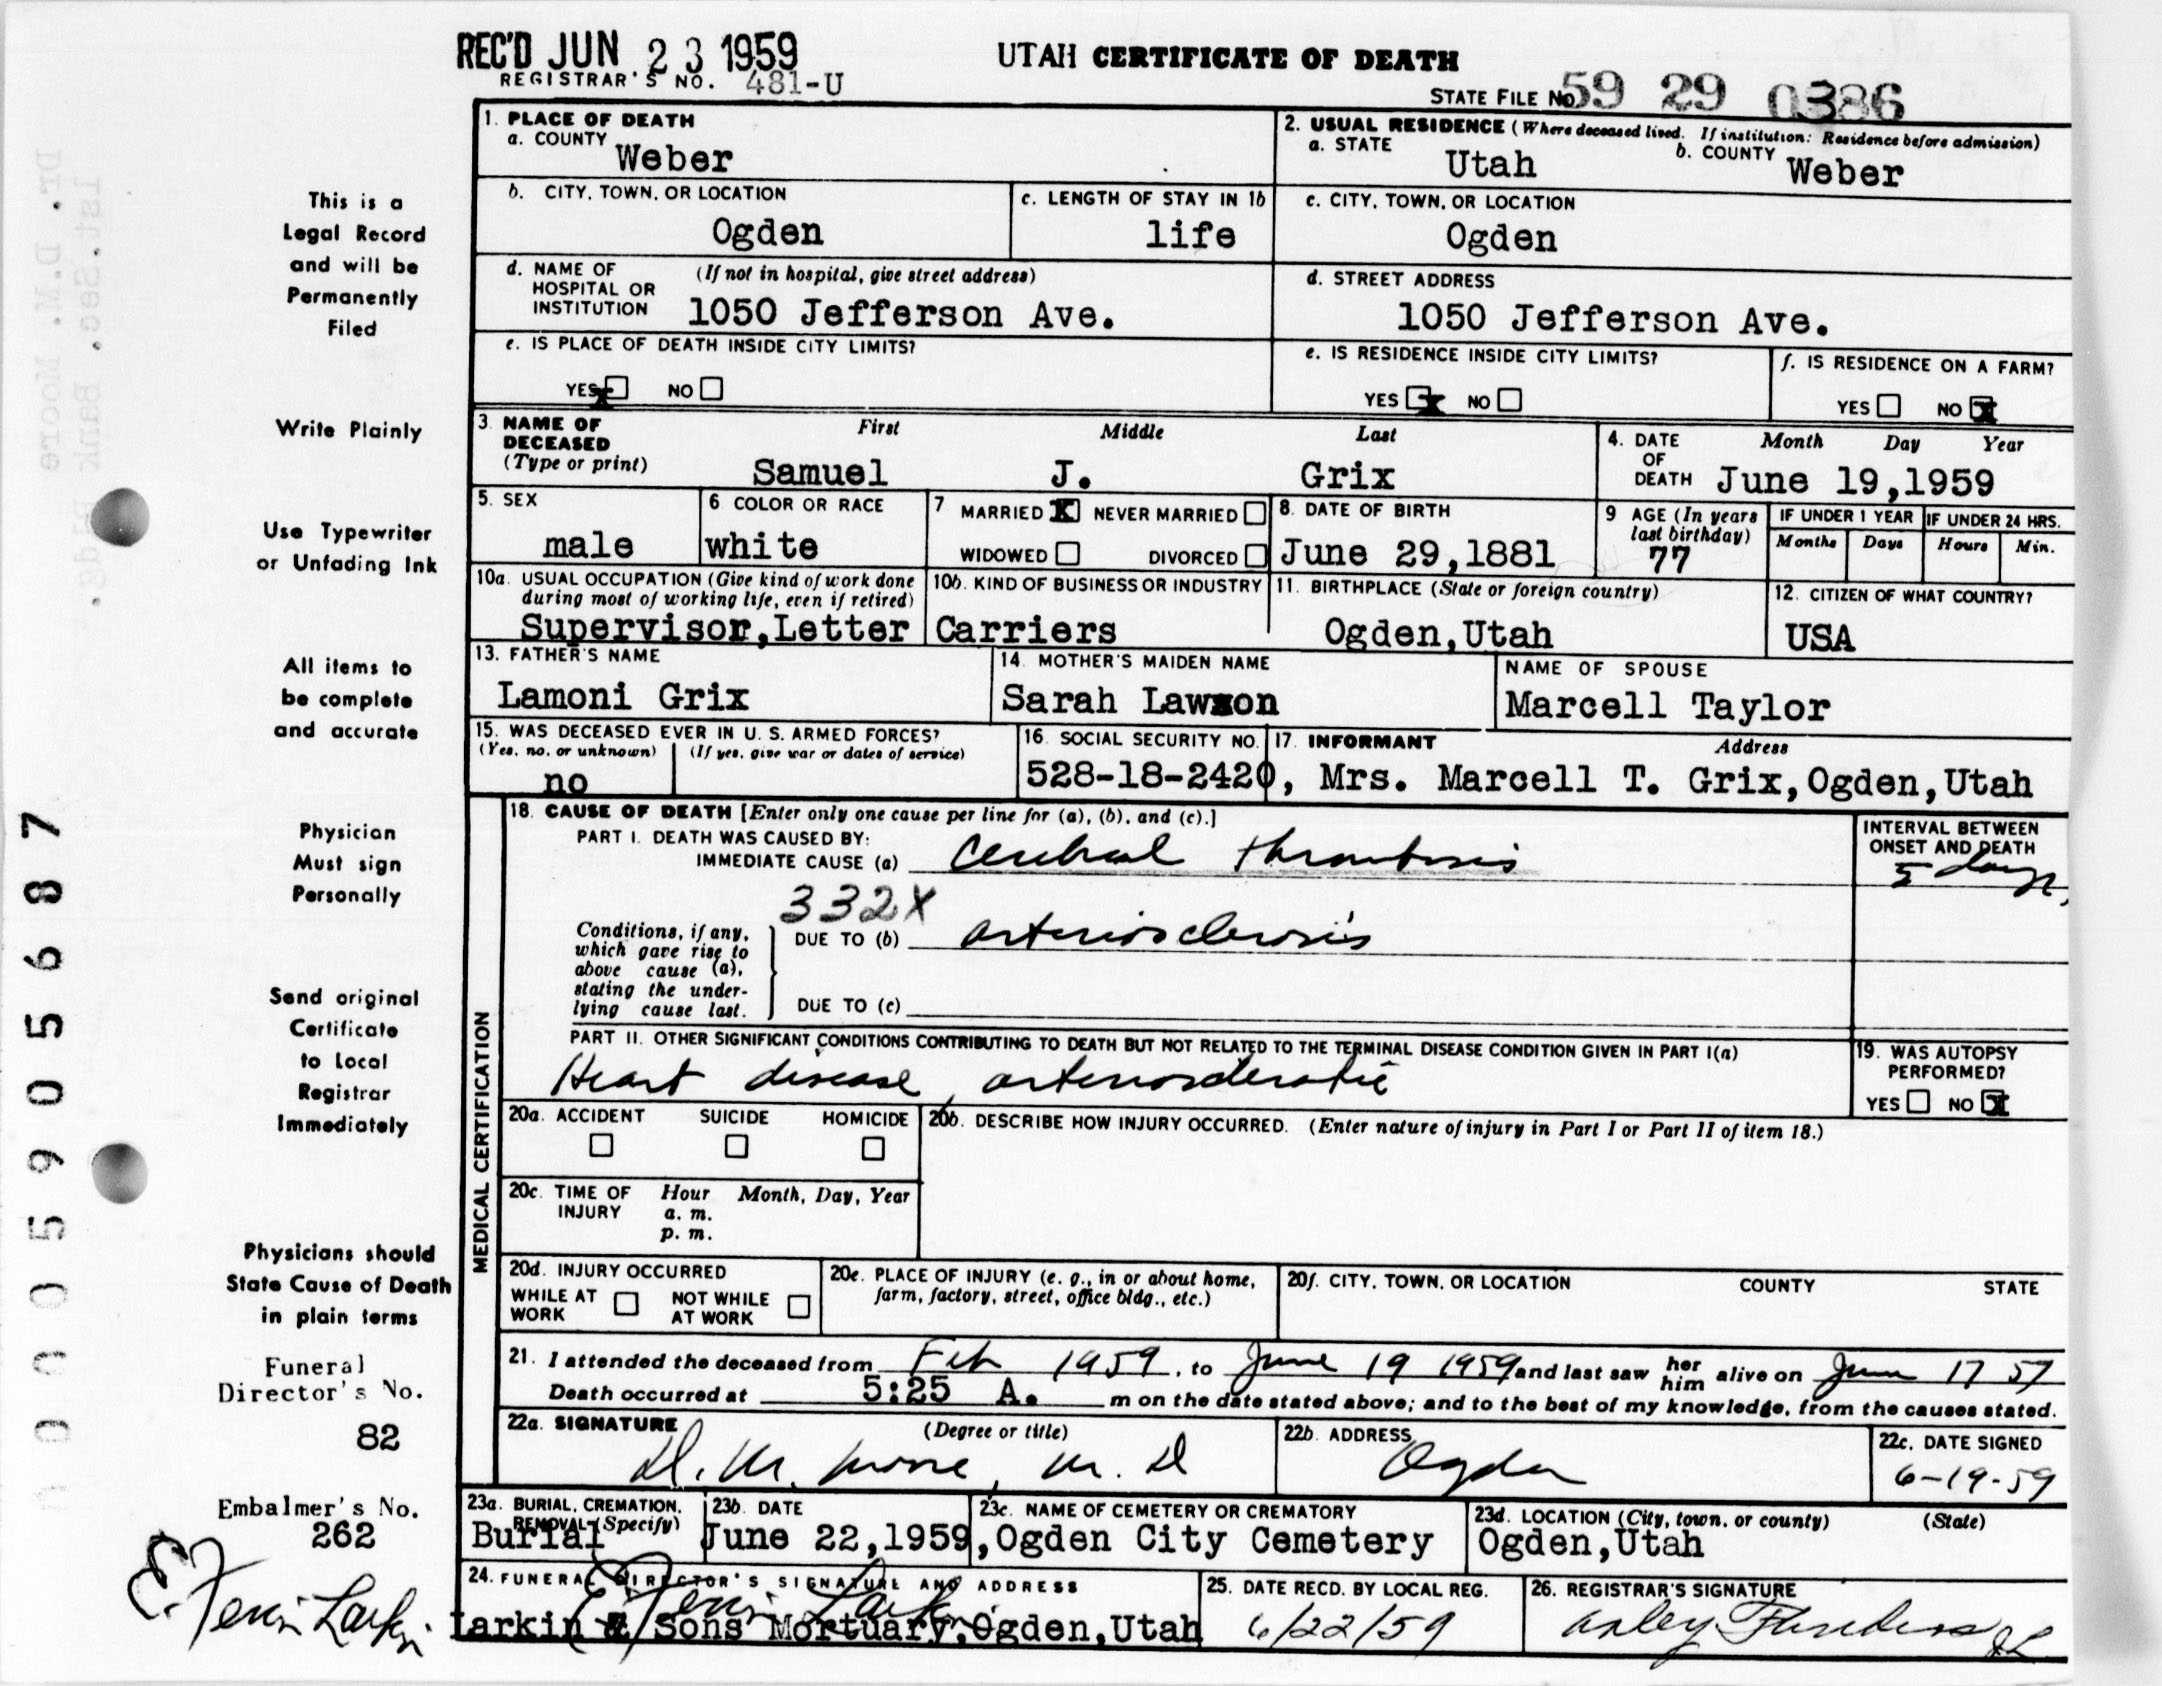 REC'D JUN 23 1959
REGISTRAR'S NO. 481-U
UTAH CERTIFICATE OF DEATH
STATE FILE NO 59 29 0386
1. PLACE OF DEATH
a. COUNTY Weber
2. USUAL RESIDENCE (Where deceased lived. If institution: Residence before admission)
a. STATE Utah b. COUNTY Weber
b. CITY, TOWN, OR LOCATION Ogden
c. LENGTH OF STAY IN 1b life
c. CITY, TOWN, OR LOCATION Ogden
d. NAME OF HOSPITAL OR INSTITUTION (If not in hospital, give street address) 1050 Jefferson Ave.
d. STREET ADDRESS 1050 Jefferson Ave.
e. IS PLACE OF DEATH INSIDE CITY LIMITS?
YES x NO
e. IS RESIDENCE INSIDE CITY LIMITS?
YES x NO
f. IS RESIDENCE ON A FARM?
YES NO x
3. NAME OF DECEASED (Type or print)
First Middle Last
Samuel J. Grix
4. DATE OF DEATH Month Day Year
June 19,1959
5. SEX male
6 COLOR OR RACE white
7 MARRIED X NEVER MARRIED
WIDOWED DIVORCED
8. DATE OF BIRTH June 29,1881
9 AGE (In years last birthday) 77
IF UNDER 1 YEAR Months Days
IF UNDER 24 HRS. Hours Min.
10a. USUAL OCCUPATION (Give kind of work done during most of working life, even if retired)
Supervisor,Letter
10b. KIND OF BUSINESS OR INDUSTRY
Carriers
11. BIRTHPLACE (State or foreign country)
Ogden,Utah
12. CITIZEN OF WHAT COUNTRY?
USA
13. FATHER'S NAME
Lamoni Grix
14. MOTHER'S MAIDEN NAME
Sarah
NAME OF SPOUSE
Marcell Taylor
15. WAS DECEASED EVER IN U. S. ARMED FORCES?
(Yes, no, or unknown) (If yes, give war or dates of service)
no
16. SOCIAL SECURITY NO.
528-18-2420,
17. INFORMANT Address
Mrs. Marcell T. Grix,Ogden,Utah
18. CAUSE OF DEATH [Enter only one cause per line for (a), (b), and (c).]
PART I. DEATH WAS CAUSED BY:
IMMEDIATE CAUSE (a) Cerebral thrombosis
INTERVAL BETWEEN ONSET AND DEATH
5 days
332X
Conditions, if any, which gave rise to above cause (a), stating the underlying cause last.
DUE TO (b) arteriosclerosis
DUE TO (c)
PART II. OTHER SIGNIFICANT CONDITIONS CONTRIBUTING TO DEATH BUT NOT RELATED TO THE TERMINAL DISEASE CONDITION GIVEN IN PART I(a)
Heart disease, arteriosclerotic
19. WAS AUTOPSY PERFORMED?
YES NO x
20a. ACCIDENT SUICIDE HOMICIDE
20b. DESCRIBE HOW INJURY OCCURRED. (Enter nature of injury in Part I or Part II of item 18.)
20c. TIME OF INJURY Hour Month, Day, Year
a. m.
p. m.
20d. INJURY OCCURRED
WHILE AT WORK NOT WHILE AT WORK
20e. PLACE OF INJURY (e. g., in or about home, farm, factory, street, office bldg., etc.)
20f. CITY, TOWN, OR LOCATION COUNTY STATE
MEDICAL CERTIFICATION
21. I attended the deceased from Feb 1959, to June 19 1959 and last saw her him alive on June 17 59
Death occurred at 5:25 A. m on the date stated above; and to the best of my knowledge, from the causes stated.
22a. SIGNATURE (Degree or title)
D. M. Moore, M. D
22b. ADDRESS
Ogden
22c. DATE SIGNED
6-19-59
23a. BURIAL, CREMATION, REMOVAL (Specify)
Burial
23b. DATE
June 22,1959,
23c. NAME OF CEMETERY OR CREMATORY
Ogden City Cemetery
23d. LOCATION (City, town, or county) (State)
Ogden,Utah
24. FUNERAL DIRECTOR'S SIGNATURE AND ADDRESS
Larkin & Sons Mortuary,Ogden,Utah
25. DATE RECD. BY LOCAL REG.
6/22/59
26. REGISTRAR'S SIGNATURE
This is a
Legal Record
and will be
Permanently
Filed
Write Plainly
Use Typewriter
or Unfading Ink
All items to
be complete
and accurate
Physician
Must sign
Personally
Send original
Certificate
to Local
Registrar
Immediately
Physicians should
State Cause of Death
in plain terms
Funeral
Director's No.
82
Embalmer's No.
262
Larkin
0005905687
Dr. D.M. Moore
1st. Sec. Bank Bldg.